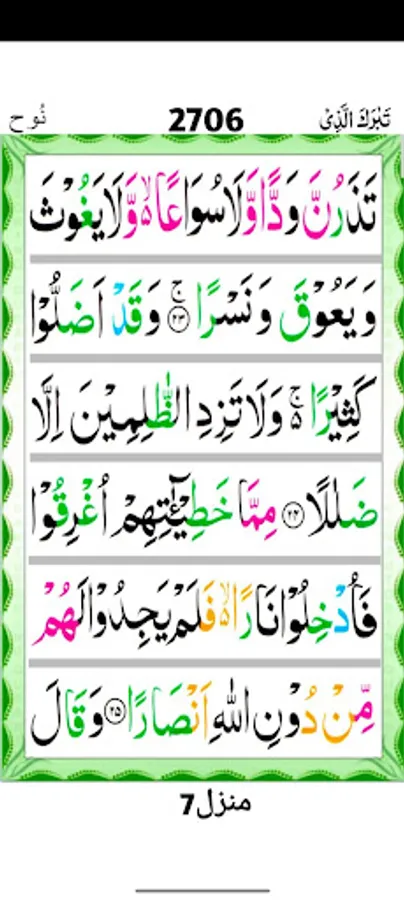 تَبٰرَكَ الَّذِىْ 2706 نُوح
تَذَرُنَّ وَدًّا وَّلَا سُوَاعًا ۙ وَّلَا يَغُوْثَ
وَيَعُوْقَ وَنَسْرًا ۚ ﴿۲۳﴾ وَقَدْ اَضَلُّوْا
كَثِيْرًا ۚ وَلَا تَزِدِ الظّٰلِمِيْنَ اِلَّا
ضَلٰلًا ﴿۲۴﴾ مِمَّا خَطِيْٓـٰٔتِهِمْ اُغْرِقُوْا
فَاُدْخِلُوْا نَارًا ۙ فَلَمْ يَجِدُوْا لَهُمْ
مِّنْ دُوْنِ اللّٰهِ اَنْصَارًا ﴿۲۵﴾ وَقَالَ
منزل 7